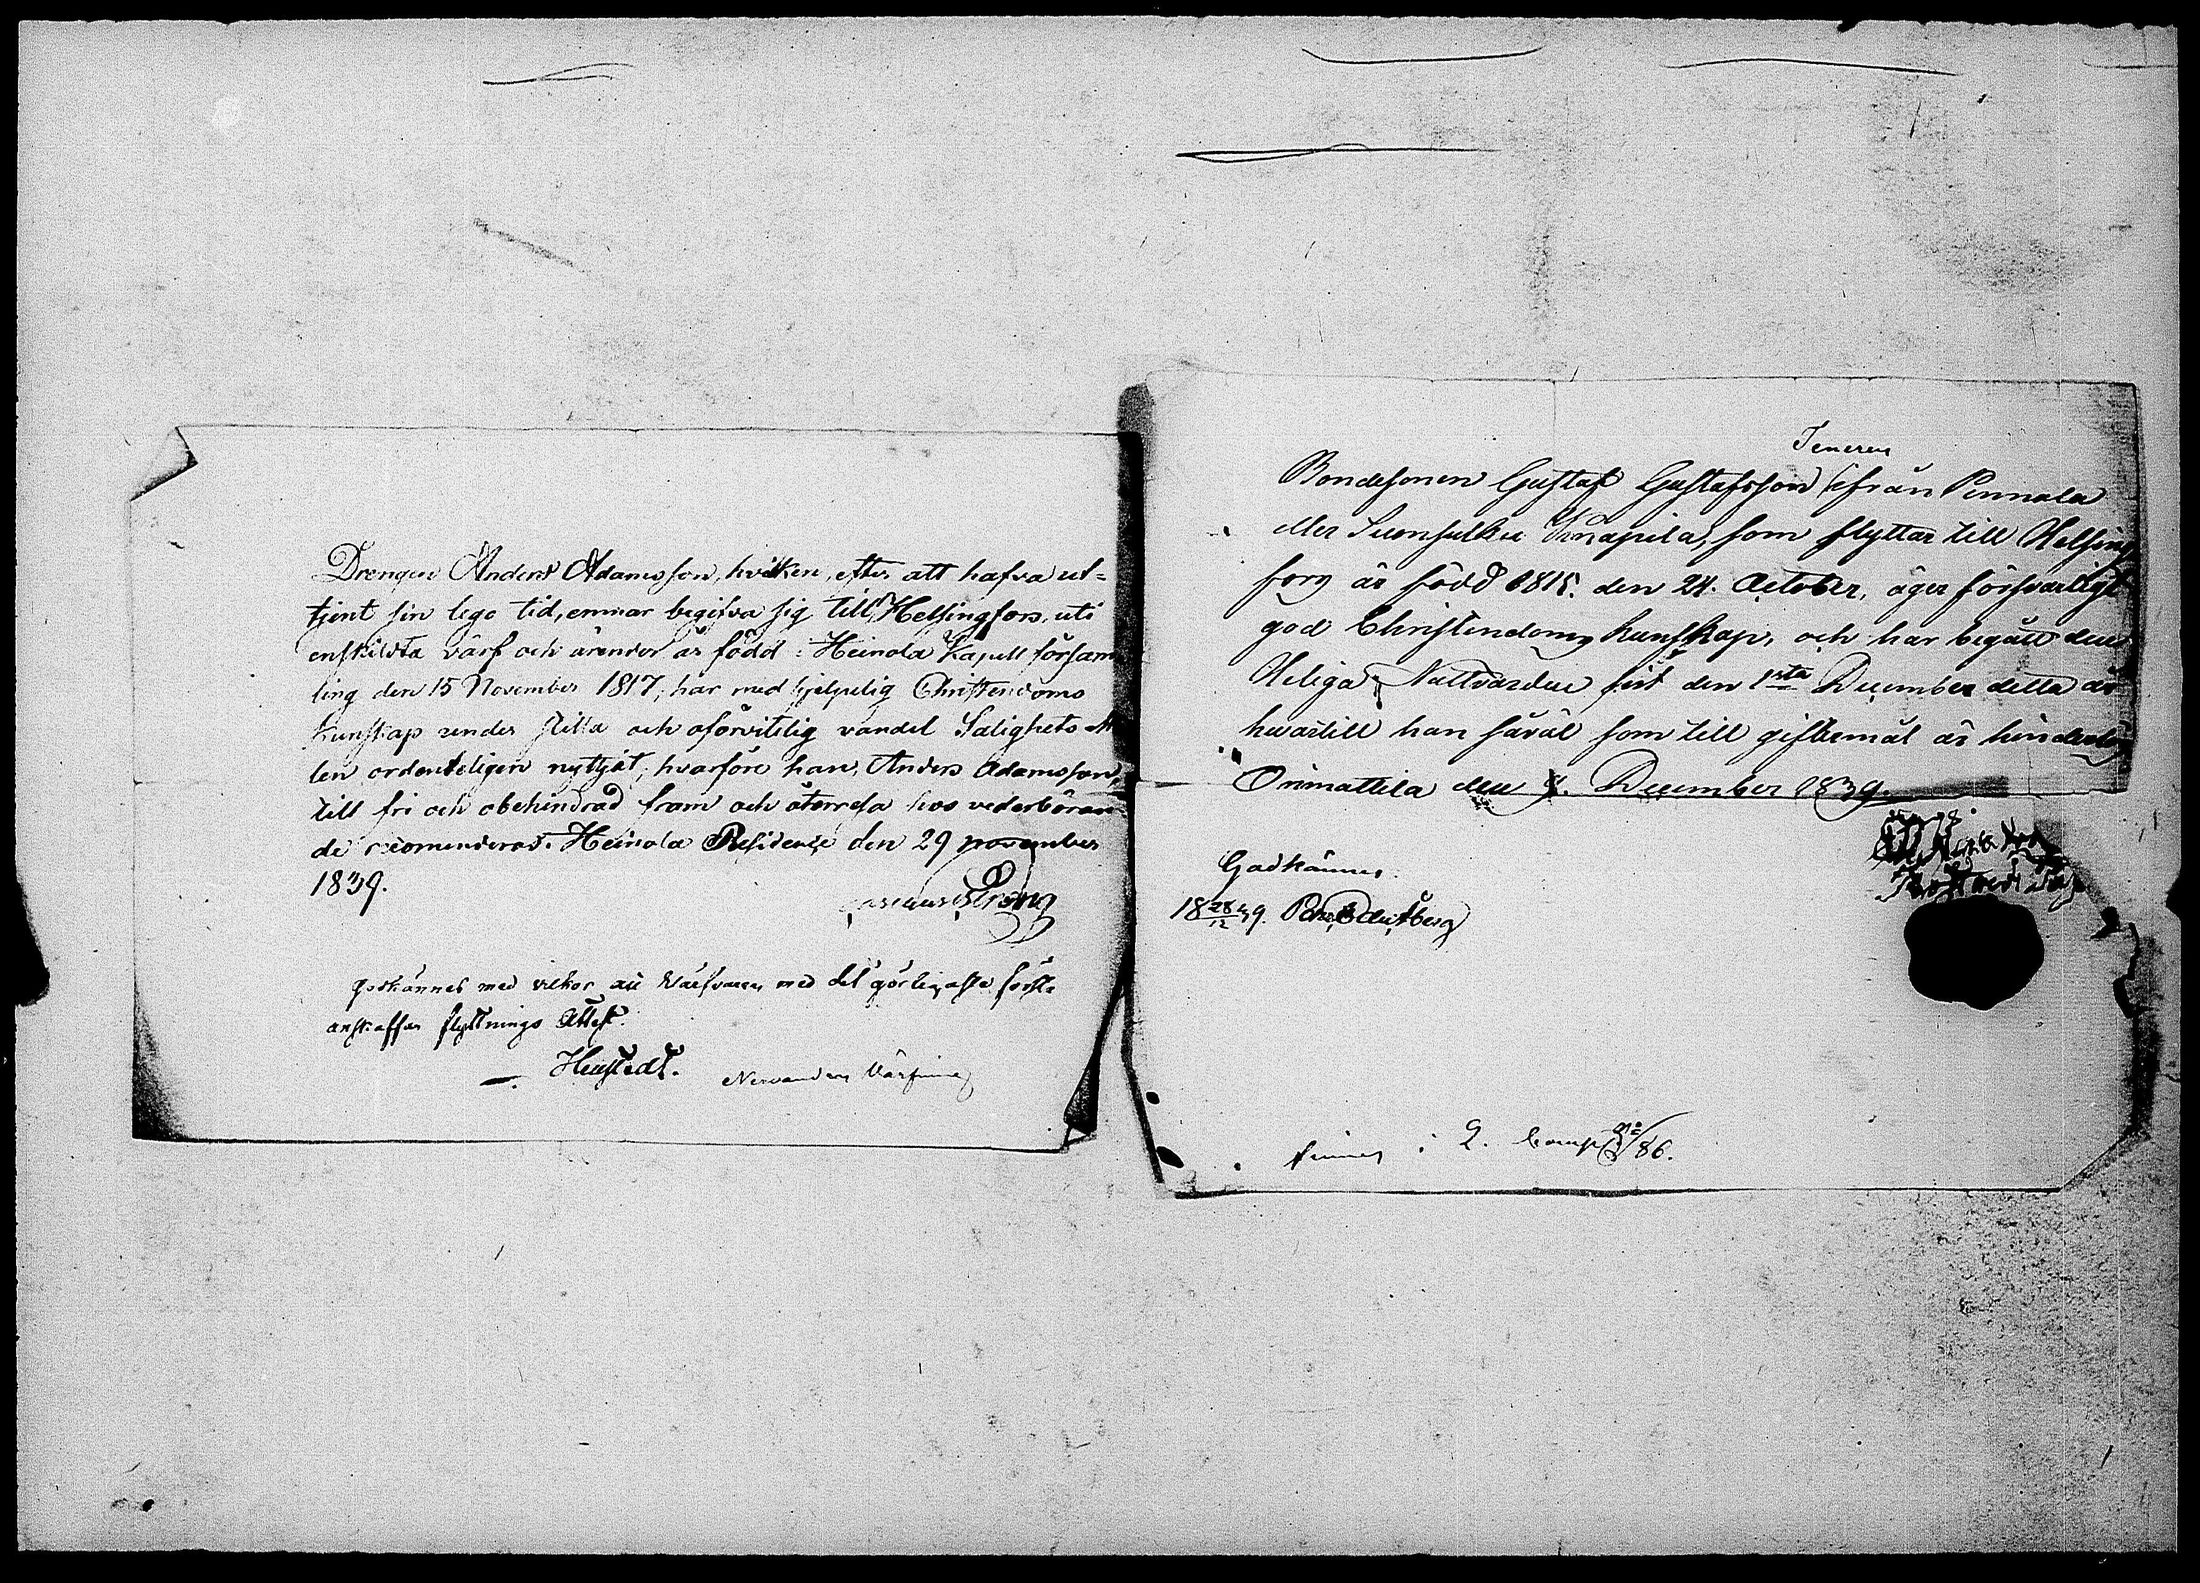 Drengen Anders Adamsson, hvilken, efter att hafva ut-
tjent sin lego tid, ernar begifva sig till Helsingfors, uti
enskildta värf och ärender är född i Heinola Kapell församl
ling den 15 November 1817, har med hjelpelig Christendoms
kunskap under stilla och oförvitelig vandel Salighets M
len ordenteligen nyttjat; hvarföre han, Anders Adamsson,
till fri och obehindrad fram och återresa hos vederböran
de recomenderas. Heinola Residence den 29 november
1839.
godkännes med vilkor att Värfvaren med det görligaste första
anskaffar flyttnings Attest.
Nervanders Värfning
Bondesonen Gustaf Gustafsson ifrån Pennala
eller Suonsulku Knapila, som flyttar till Helsing
fors är född 1815. den 24. October, äger försvarligt
god Christendoms kunskap, och har begått den
Heliga Nattvarden sist den 1sta December detta år
hvartill han såväl som till giftermål är hinderslös
Orimattila den 9. December 1839.
Godkännes.
18 28/12 39.
finnes i 2. Comp No 86.